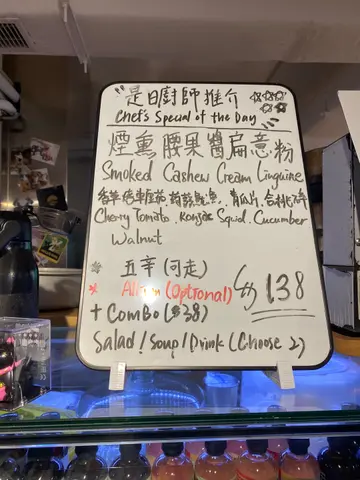 是日廚師推介
Chef's Special of the Day
煙熏腰果醬扁意粉
Smoked Cashew Cream Linguine
Cherry Tomato, Konjac Squid, Cucumber
Walnut
五辛(可走)
(Optional)
$138
+ Combo ($38)
Salad/Soup/Drink (Choose 2)